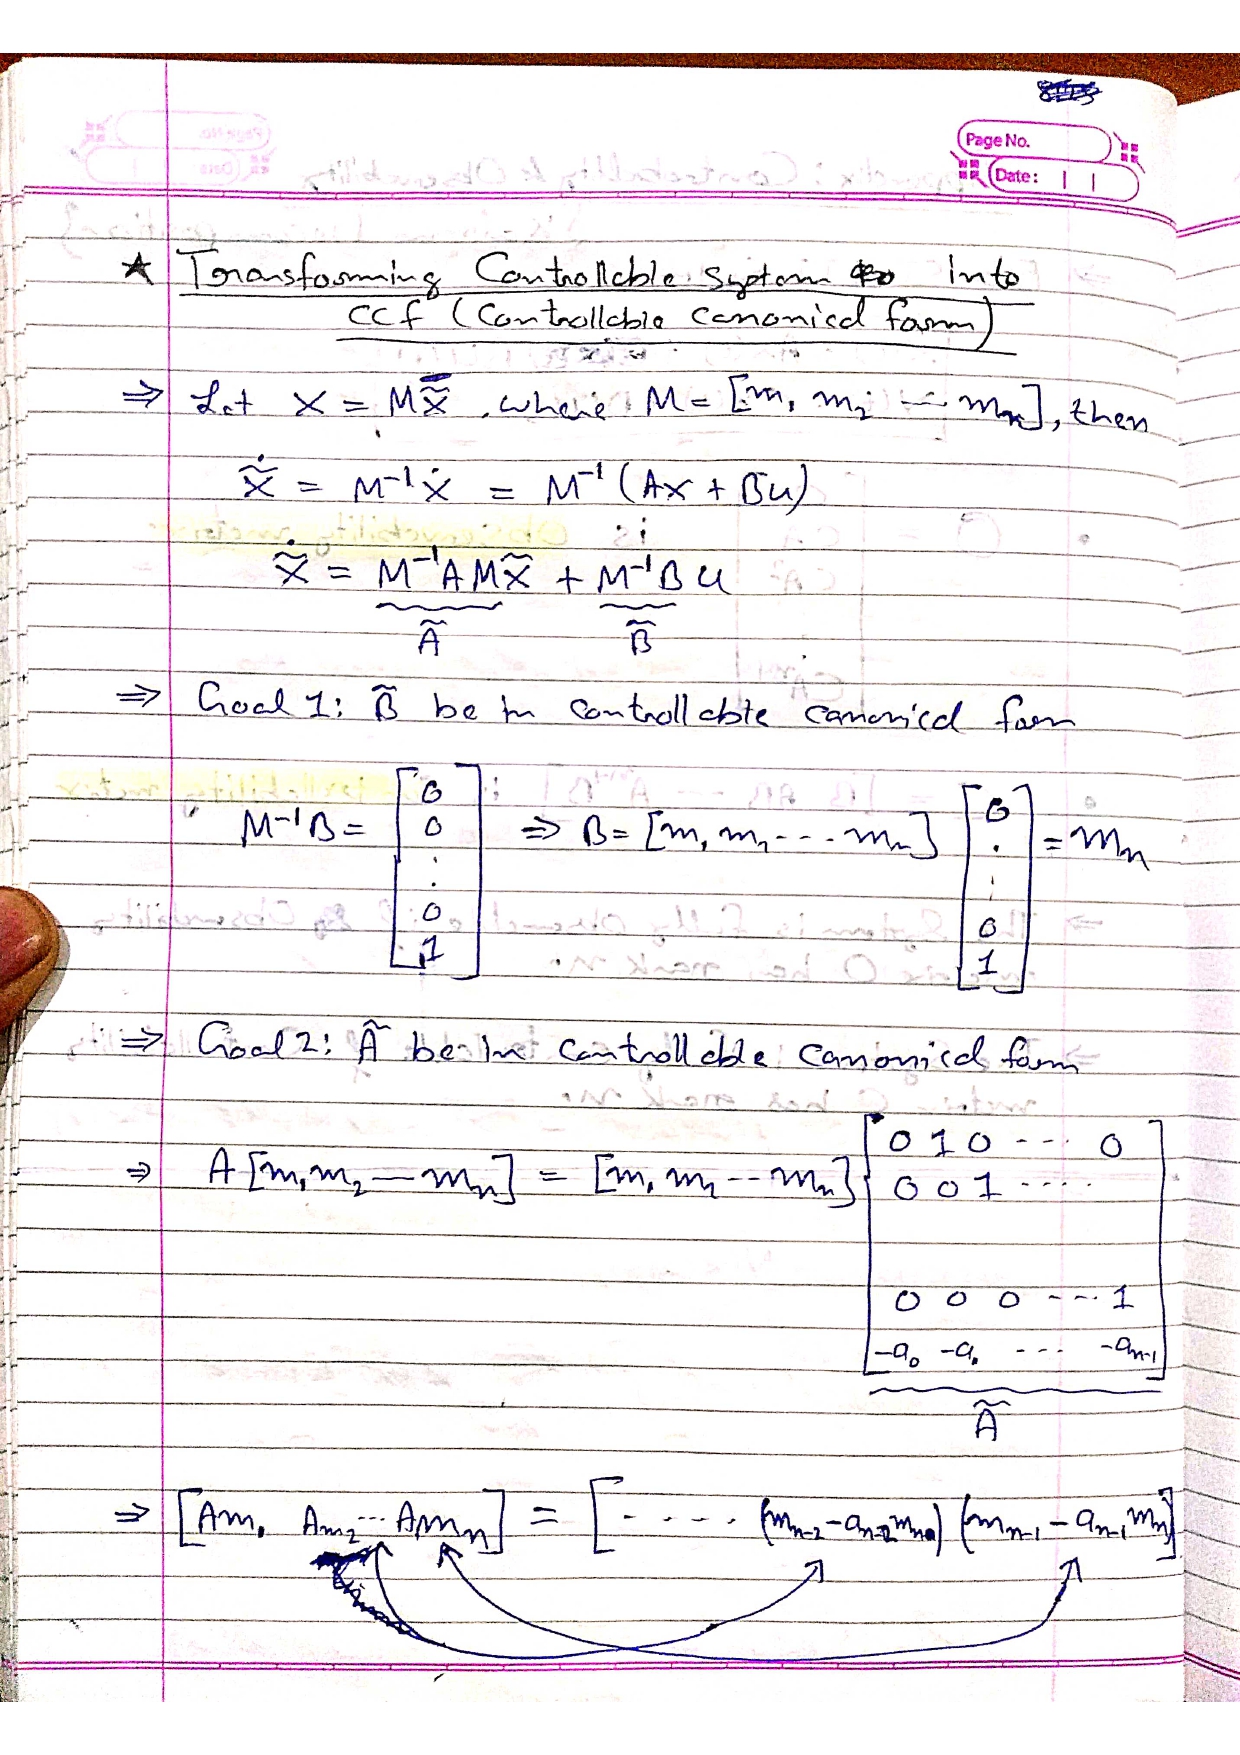 Page No.
Date:
★ Transforming Controllable system into
CCF (Controllable canonical form)
⇒ Let X = M x̃, where M = [m₁ m₂ --- mₙ], then
x̃̇ = M⁻¹ẋ = M⁻¹(Ax + Bu)
x̃̇ = M⁻¹AM x̃ + M⁻¹B u
Ã B̃
⇒ Goal 1: B̃ be in controllable canonical form
M⁻¹B = [0 0 : . 0 1] ⇒ B = [m₁ m₂ --- mₙ] [0 . : 0 1] = mₙ
⇒ Goal 2: Ã be in controllable canonical form
⇒ A [m₁ m₂ — mₙ] = [m₁ m₂ -- mₙ] [0 1 0 --- 0
0 0 1 ----
0 0 0 --- 1
-a₀ -a₁ --- -aₙ₋₁]
Ã
⇒ [Am₁ Am₂ --- Amₙ] = [- ---- (mₙ₋₂ - aₙ₋₂mₙ) (mₙ₋₁ - aₙ₋₁mₙ)]